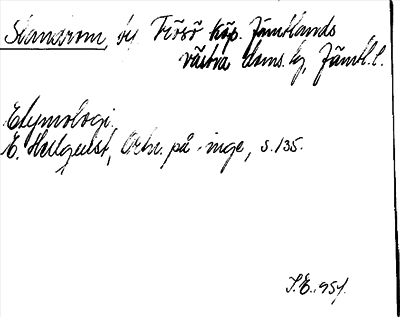 by Frösö köp. Jämtlands
västra doms. Jämtl. l.
Etymologi.
E. Hellquist, Ortn. på -inge, s. 135.